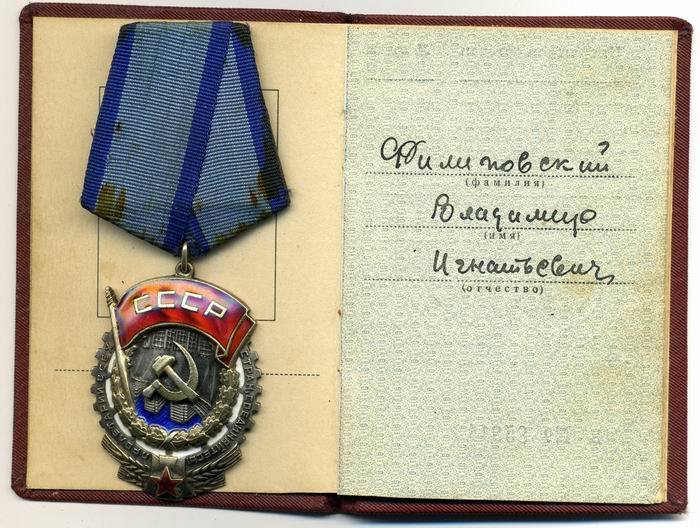 Филиповский
(фамилия)
Владимир
(имя)
Игнатьевич
(отчество)
СССР
ПРОЛЕТАРИИ ВСЕХ СТРАН СОЕДИНЯЙТЕСЬ